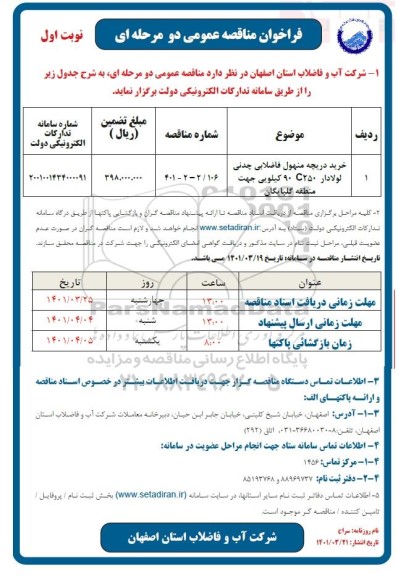 فراخوان مناقصه عمومی دو مرحله ای
نوبت اول
۱- شرکت آب و فاضلاب استان اصفهان در نظر دارد مناقصه عمومی دو مرحله ای، به شرح جدول زیر
را از طریق سامانه تدارکات الکترونیکی دولت برگزار نماید.
ردیف
موضوع
شماره مناقصه
مبلغ تضمین (ریال)
شماره سامانه تدارکات الکترونیکی دولت
۱
خرید دریچه منهول فاضلابی چدنی
لولادار C۲۵۰ ۹۰ کیلویی جهت
منطقه گلپایگان
۴۰۱ - ۲ - ۲ / ۱۰۶
۳۹۸.۰۰۰.۰۰۰
۲۰۰۱۰۰۱۴۳۴۰۰۰۰۹۱
۲- کلیه مراحل برگزاری مناقصه از دریافت اسناد مناقصه تا ارائه پیشنهاد مناقصه گران و بازگشایی پاکتها از طریق درگاه سامانه
تدارکات الکترونیکی دولت (ستاد) به آدرس www.setadiran.ir انجام خواهد شد و لازم است مناقصه گران در صورت عدم
عضویت قبلی، مراحل ثبت نام در سایت مذکور و دریافت گواهی امضای الکترونیکی را جهت شرکت در مناقصه محقق سازند.
تاریخ انتشار مناقصه در سامانه: تاریخ ۱۴۰۱/۰۳/۱۹ می باشد.
عنوان
ساعت
روز
تاریخ
مهلت زمانی دریافت اسناد مناقصه
۱۳:۰۰
چهارشنبه
۱۴۰۱/۰۳/۲۵
مهلت زمانی ارسال پیشنهاد
۱۳:۰۰
شنبه
۱۴۰۱/۰۴/۰۴
زمان بازگشائی پاکتها
۸:۰۰
یکشنبه
۱۴۰۱/۰۴/۰۵
ParsNamadData
پایگاه اطلاع رسانی مناقصه و مزایده
۰۲۱-۸۸۳۴۹۶۷۰-۵
۳- اطلاعات تماس دستگاه مناقصه گزار جهت دریافت اطلاعات بیشتر در خصوص اسناد مناقصه
و ارائه پاکتهای الف:
۳-۱- آدرس: اصفهان، خیابان شیخ کلینی، خیابان جابر ابن حیان، دبیرخانه معاملات شرکت آب و فاضلاب استان
اصفهان، تلفن: ۸-۳۶۶۸۰۰۳۰-۰۳۱، اتاق (۲۹۲)
۴- اطلاعات تماس سامانه ستاد جهت انجام مراحل عضویت در سامانه:
۴-۱- مرکز تماس: ۱۴۵۶
۴-۲- دفتر ثبت نام: ۸۸۹۶۹۷۳۷ و ۸۵۱۹۳۷۶۸
۵- اطلاعات تماس دفاتر ثبت نام سایر استانها، در سایت سامانه (www.setadiran.ir) بخش ثبت نام / پروفایل /
تامین کننده / مناقصه گر موجود است.
نام روزنامه: سراج
تاریخ انتشار: ۱۴۰۱/۰۳/۲۱
شرکت آب و فاضلاب استان اصفهان